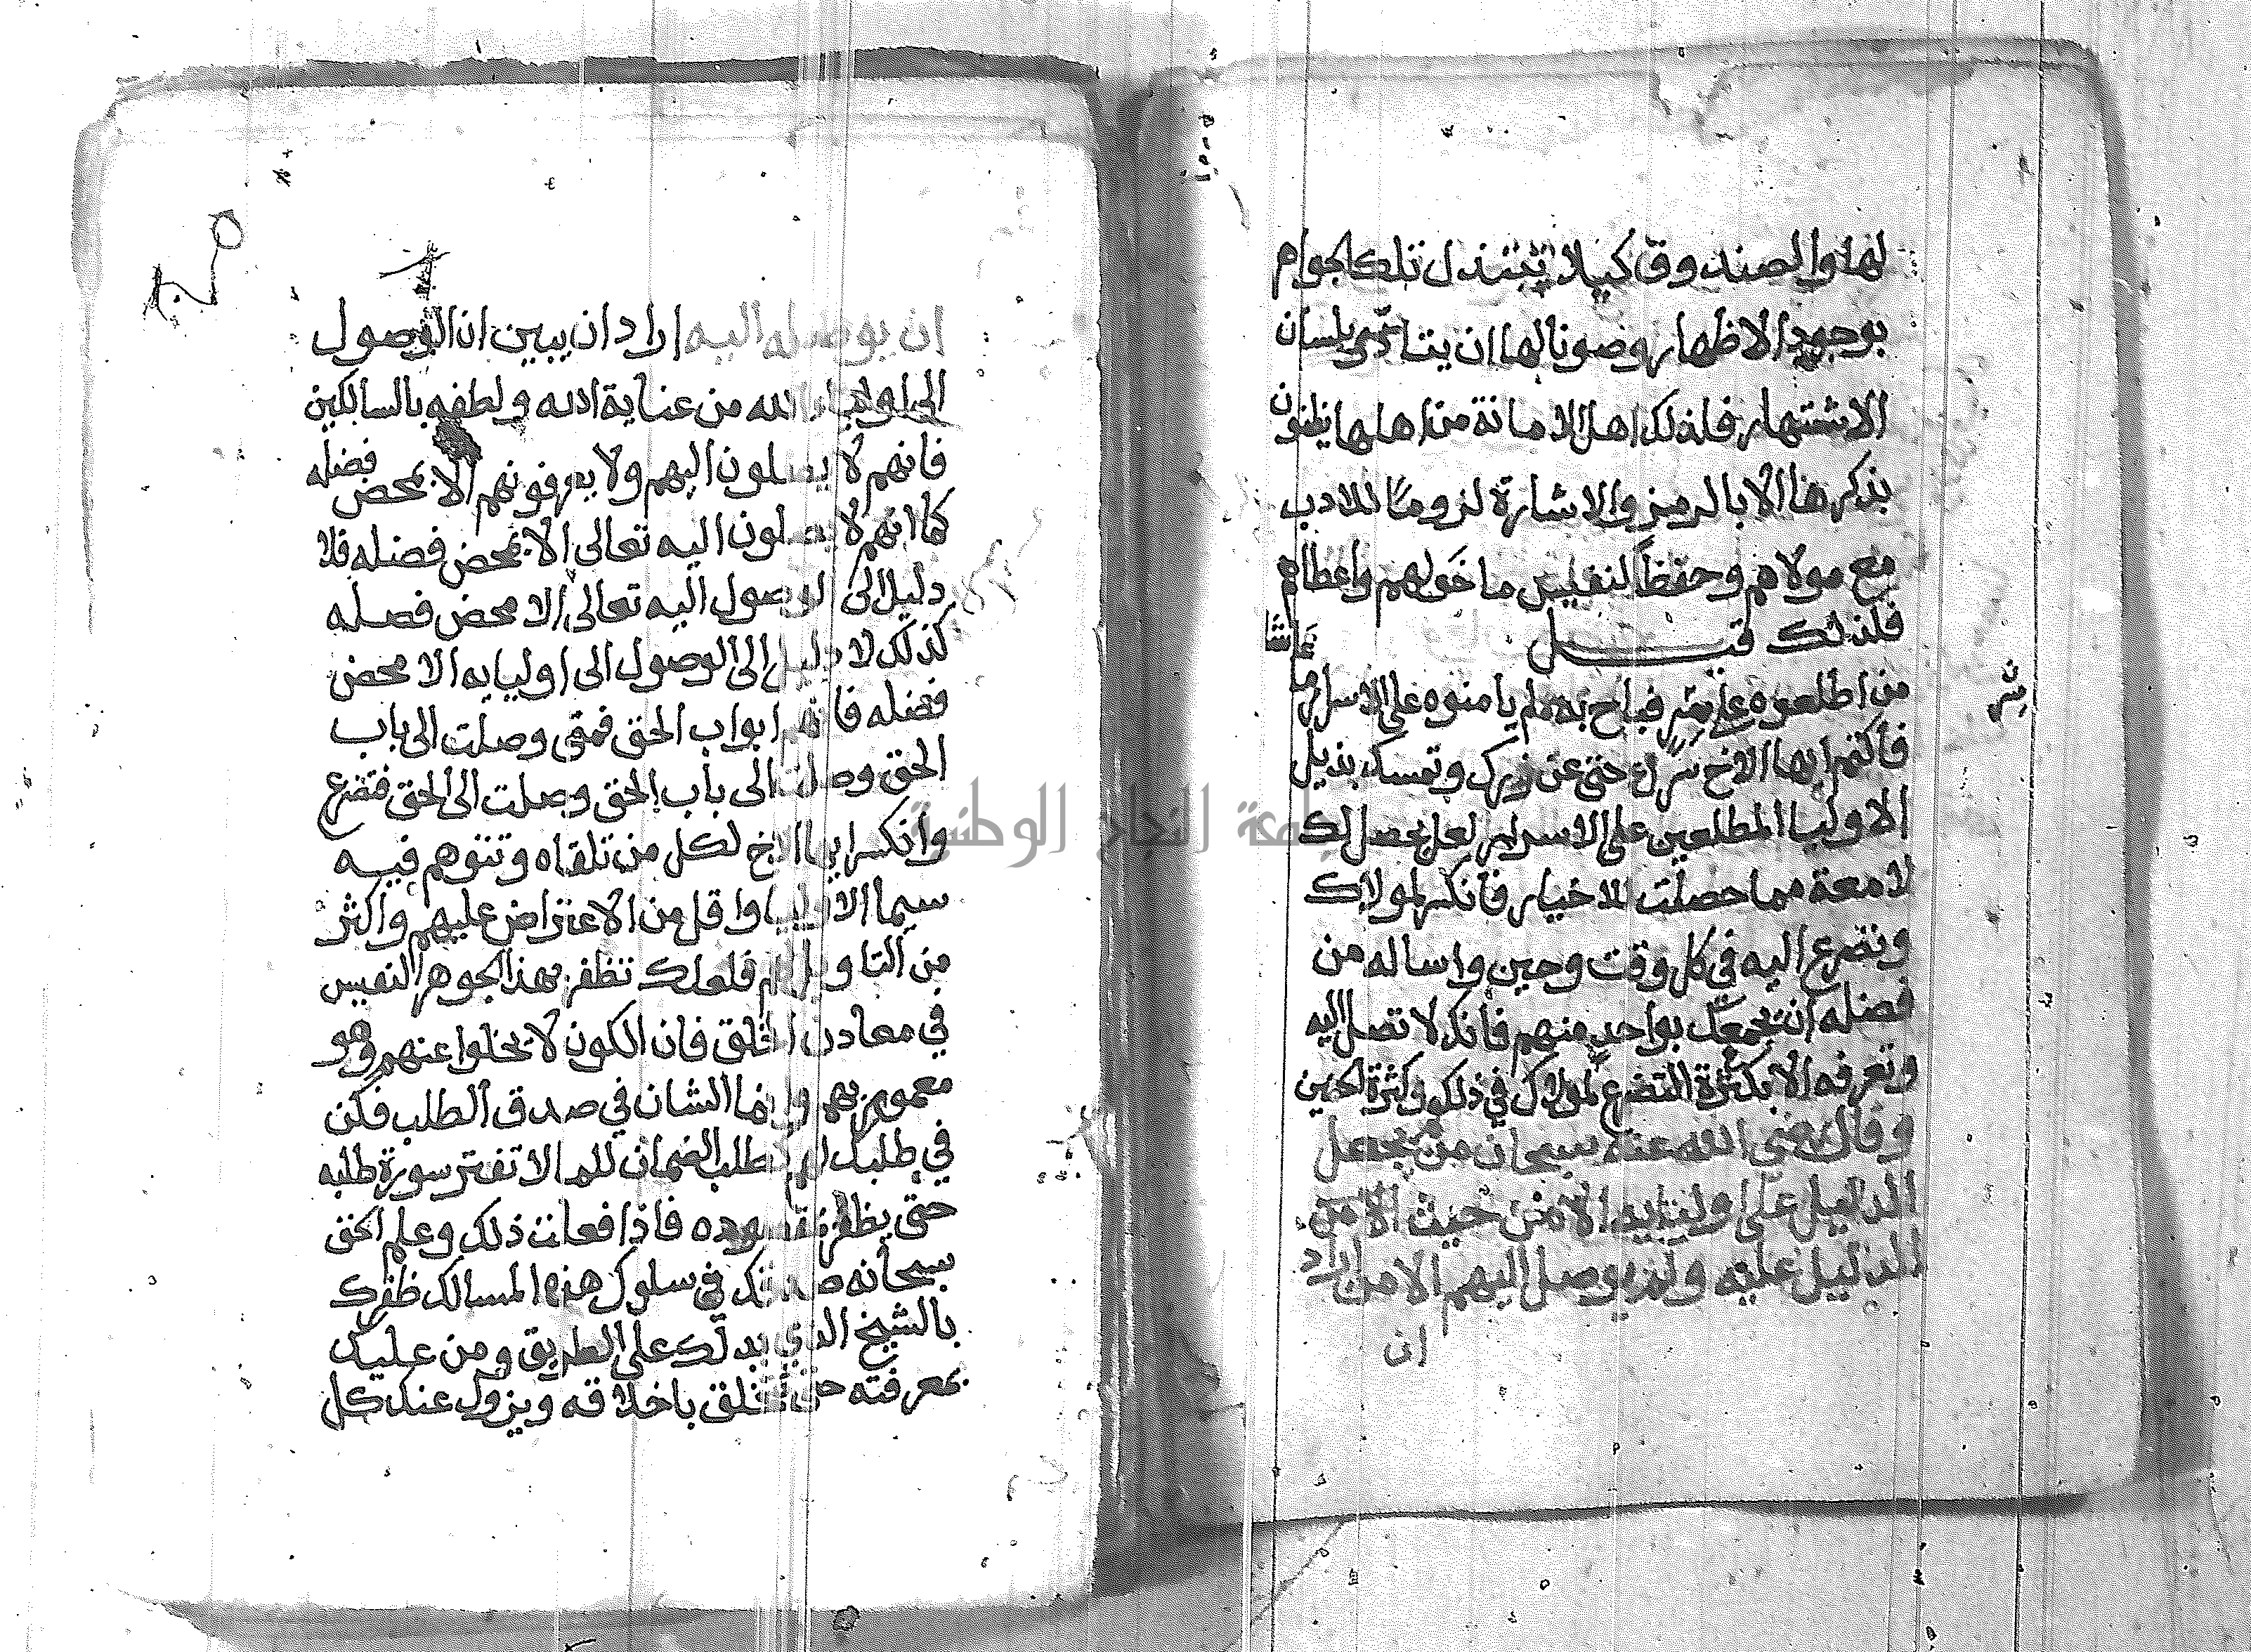 لها والصندوق كيلا تبتذل تلك الجواهر
بوجود الاظهار وصونا لها ان يتادى بلسان
الاشتهار فلذلك اهل الامانة من اهلها يظنون
بذكرها الا بالرمز والاشارة لزوما للادب
مع مولاهم وحفظا لنفيس ما خولهم واعطاهم
فلذلك قيل
من اطلعوه على سر فباح به لم يامنوه على الاسرار ما عاشا
سر
فاكتم ايها الاخ سرك حتى عن زرك وتمسك بذيل
الاوليا المطلعين على الاسرار لعل يحصل لك
لامعة مما حصلت للاخيار فانكسر لمولاك
وتضرع اليه في كل وقت وحين واساله من
فضله ان يجمعك بواحد منهم فانك لا تصل اليه
وتعرفه الا بكثرة التضرع لمولاك في ذلك وكثرة الحنين
وقال رضي الله عنه سبحان من لم يجعل
الدليل على اوليايه الا من حيث الا من
الدليل عليه ولم يوصل اليهم الا من اراد
ان
ان يوصله اليه اراد ان يبين ان الوصول
الى اولياء الله من عناية الله ولطفه بالسالكين
فانهم لا يصلون اليهم ولا يعرفونهم الا بمحض فضله
كما انهم لا يصلون اليه تعالى الا بمحض فضله فلا
دليل الى الوصول اليه تعالى الا محض فصله
كذلك لا دليل الى الوصول الى اوليايه الا محض
فضله فانهم ابواب الحق فمتى وصلت الى باب
الحق وصلت الى باب الحق وصلت الى الحق فتضرع
وانكسر ايها الاخ لكل من تلقاه وتتوهم فيه
سيما الاوليا واقل من الاعتراض عليهم واكثر
من التاويل لهم فلعلك تظفر بهذا الجوهر النفيس
في معادن الخلق فان الكون لا يخلوا عنهم وهو
معمور بهم وانما الشان في صدق الطلب فكن
في طلبك لهم طلب الضمان للما لا تفتر سورة طلبه
حتى يظفر بمقصوده فاذا فعلت ذلك وعلم الحق
سبحانه صدقك في سلوك هذه المسالك ظفرك
بالشيخ الذي يدلك على الطريق ومن عليك
بمعرفته حتى تتخلق باخلاقه ويزول عنك كل